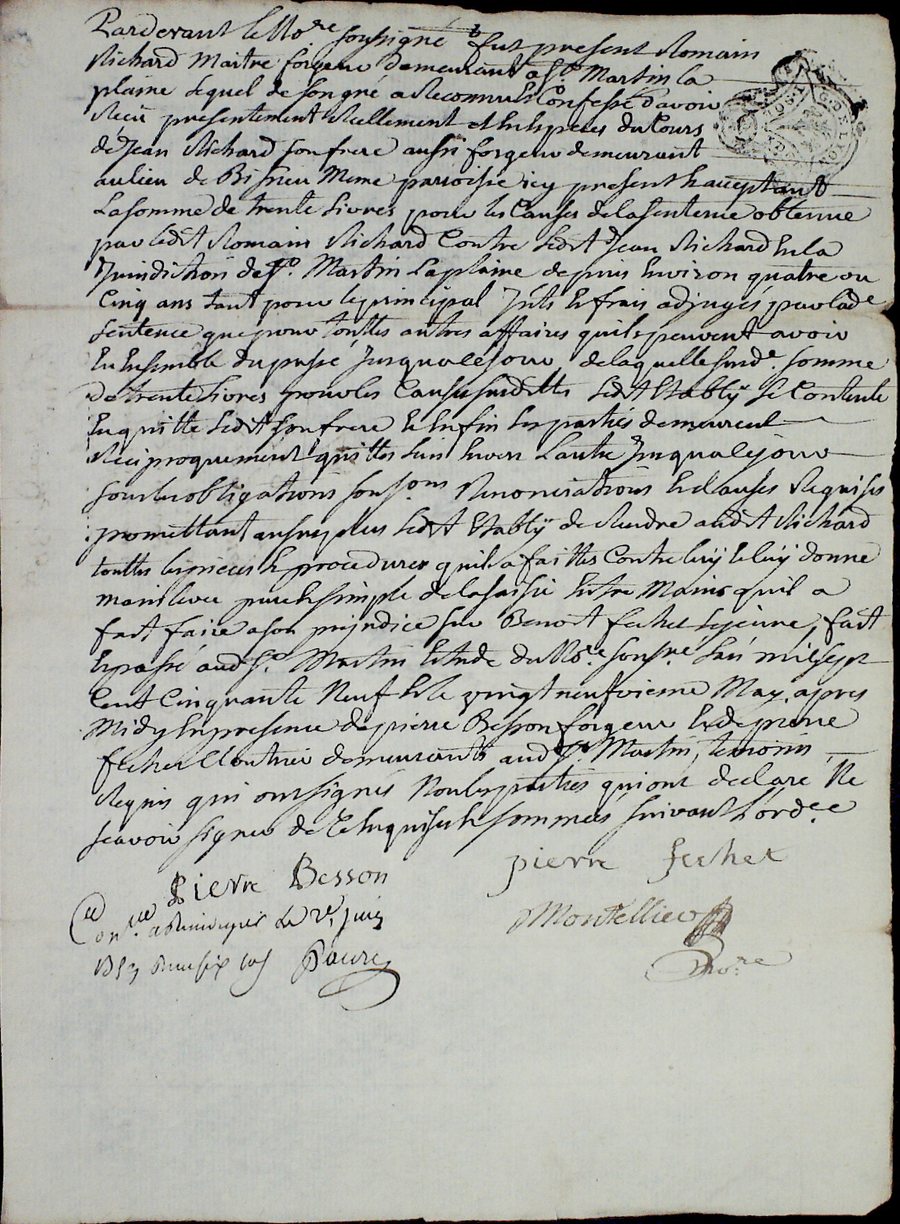 Pardevant le No.re soussigné fut present Romain
Richard Maitre forgeur demeurant a St. Martin la
plaine lequel de son gré a Reconnu et Confessé d'avoir
Recu presentement Réellement et En Especes du Cours
de Jean Richard son frere aussi forgeur demeurant
au lieu de Bissieu Meme parroisse icy present et acceptant
La somme de trente Livres pour les Causes de la sentence obtenue
par ledit Romain Richard Contre ledit Jean Richard En la
Juridiction de St. Martin La plaine depuis Environ quatre ou
Cinq ans tant pour le principal Jnts. et frais adjugés par lade.
sentence que pour touttes autres affaires quils peuvent avoir
Eu Ensemble du passé Jusqua ce jour de laquelle surde. somme
De trente Livres pour les Causes susdittes ledit Etably se Contente
En quitte ledit son frere et Enfin les parties demeurent
Reciproquement quittes l'un Envers L'autre Jusqua ce jour
sous les obligations soumons Renonciations et clauses Requises
promettant au surplus ledit Etably de Rendre audit Richard
touttes les pieces et procedures quil a faittes Contre luy et luy donne
main levée pure et simple de la saisie Entre Mains quil a
fait faire a son prejudice sur Benoit fechet le jeune, fait
Et passé aud. St. Martin Etude du No.re souss.né L'an mil sept
Cent Cinquante Neuf et le vingt neufvieme May apres
Midy En presence de pierre Besson forgeur et de pierre
fechet Cloutrier demeurants aud. St. Martin, temoins
Requis qui ont signés Non les parties qui ont declaré Ne
scavoir signer de ce Enquises et sommées suivant l'ord.ce
Pierre Besson pierre fechet
Montellier
No.re
a Rivedegier Le 2e. juin
1759 Faure